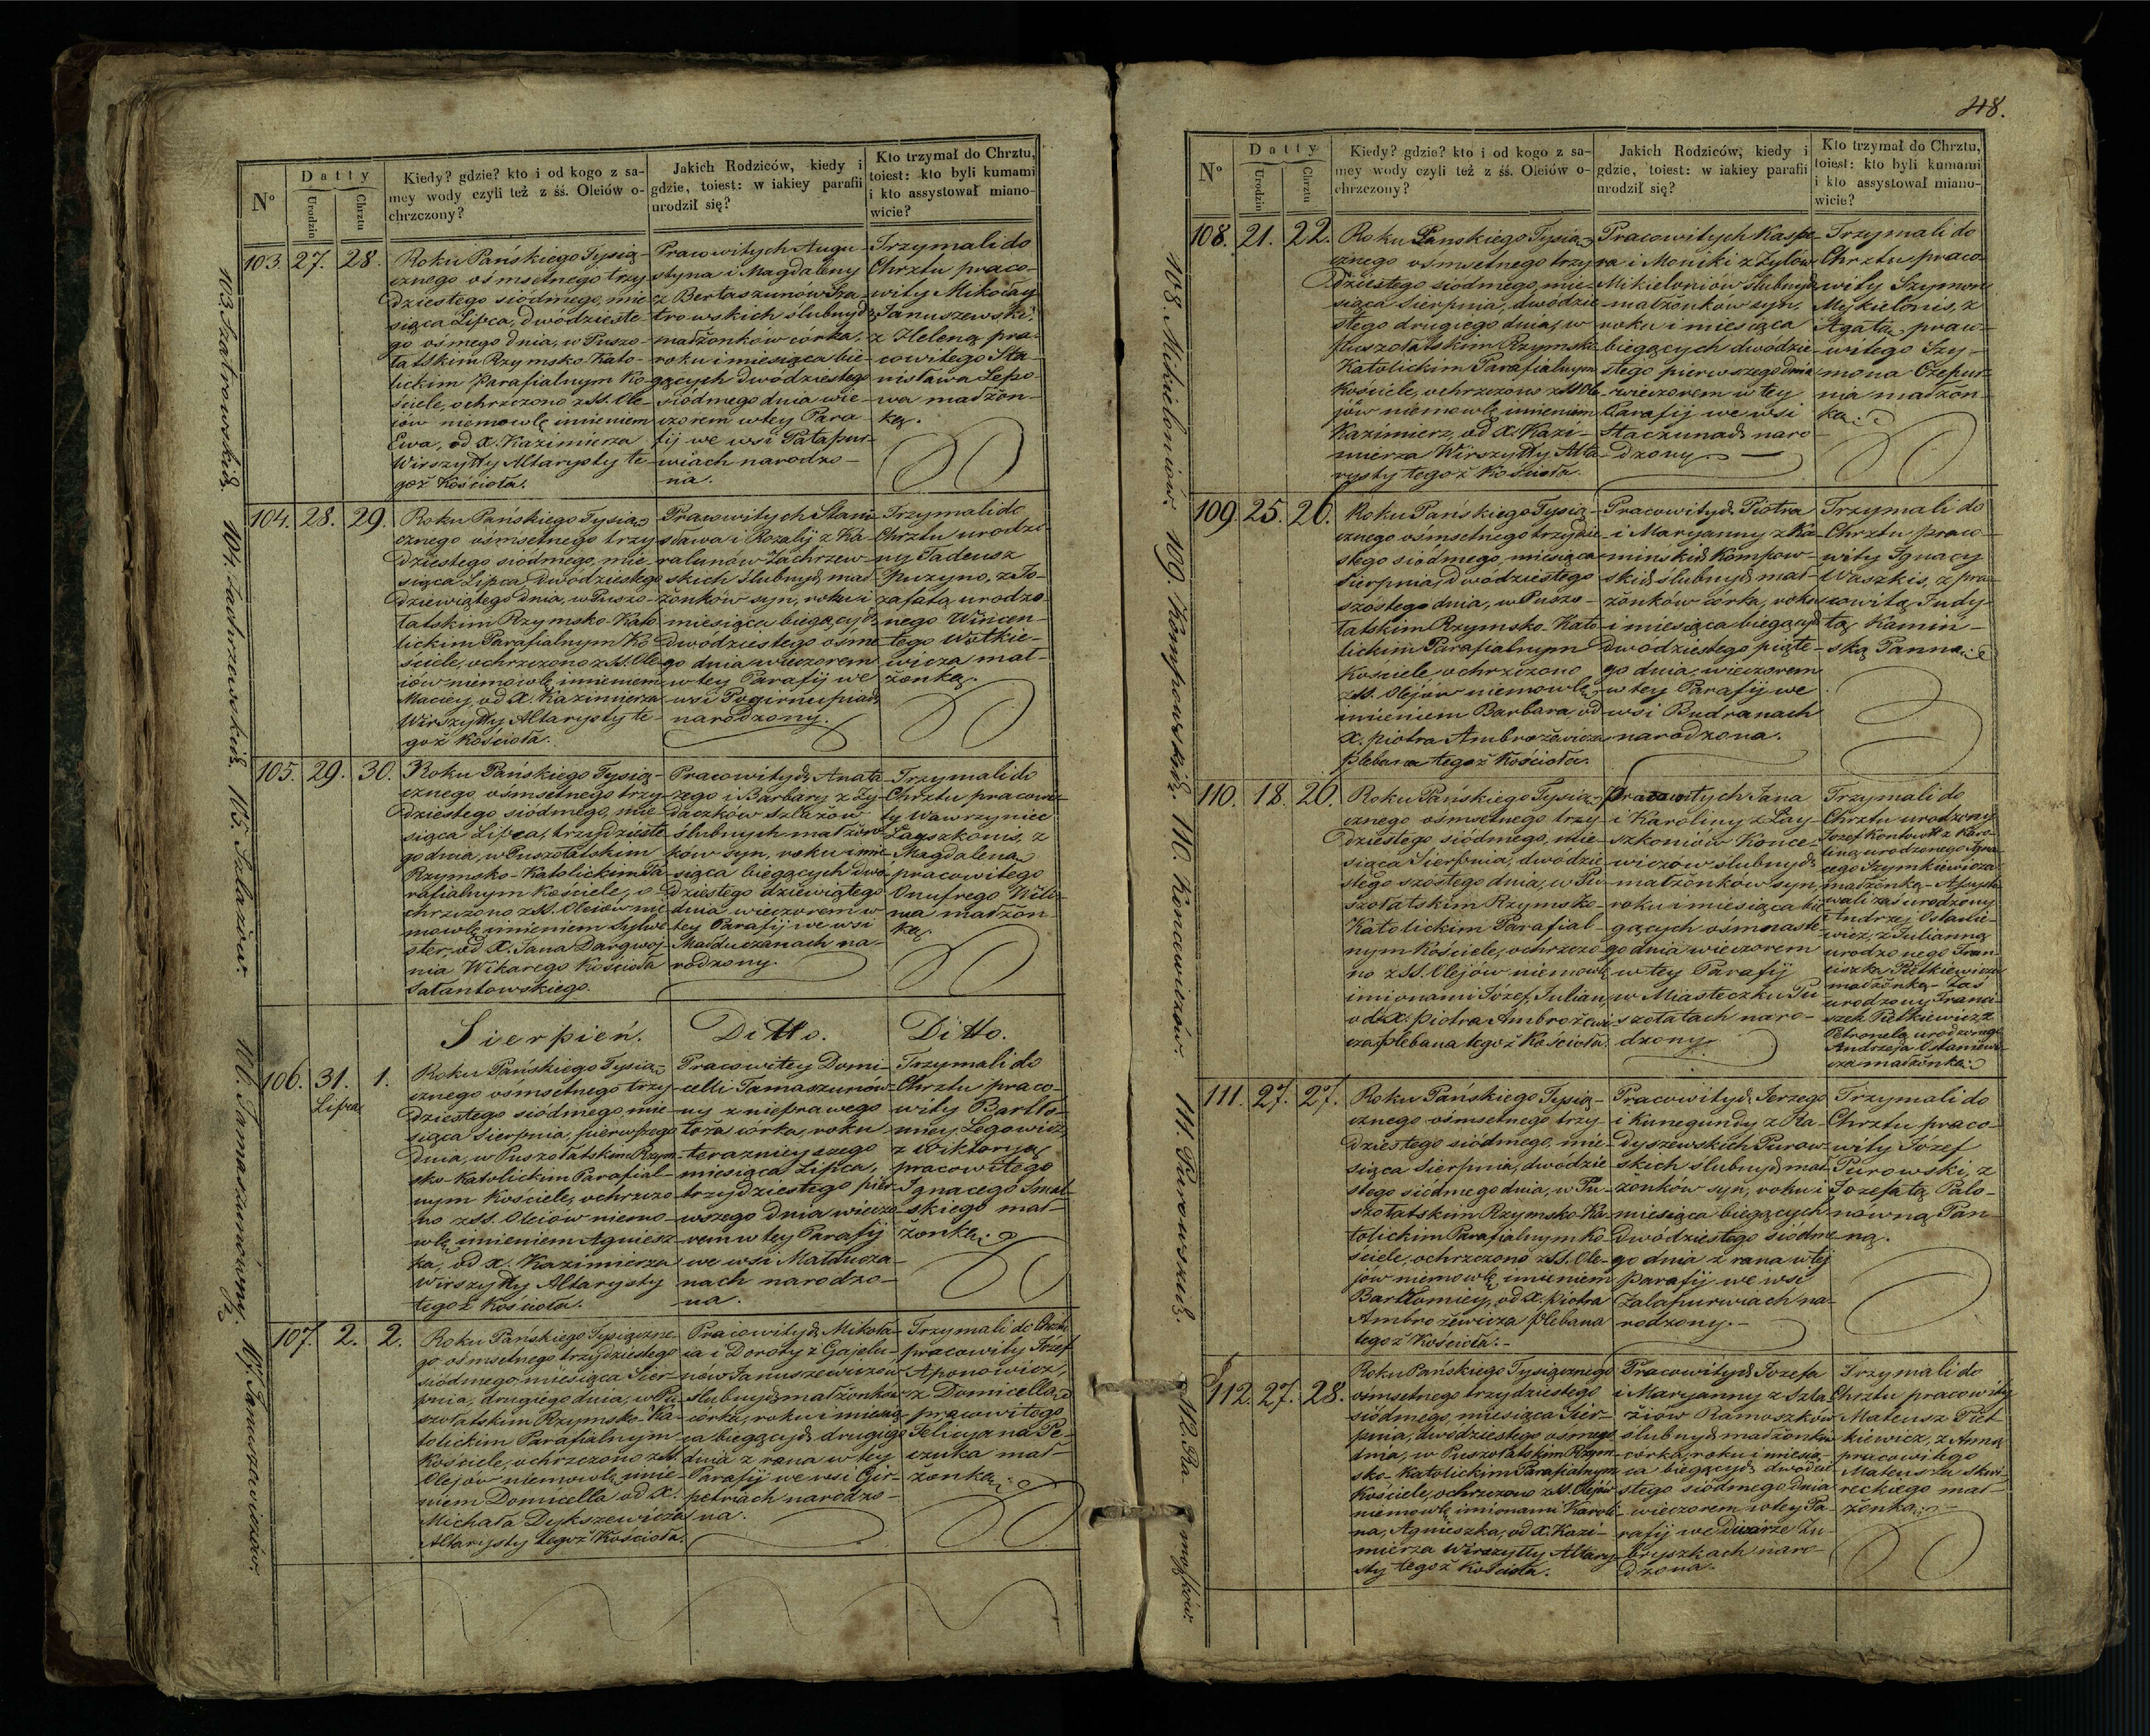 N°
Datty
Urodzin
Chrztu
Kiedy? gdzie? kto i od kogo z sa-
mey wody czyli też z śś. Oleiów o-
chrzczony?
Jakich Rodziców, kiedy i
gdzie, toiest: w iakiey parafii
urodził się?
Kto trzymał do Chrztu,
toiest: kto byli kumami
i kto assystował miano-
wicie?
103. 27. 28.
Roku Pańskiego Tysią-
cznego ośmsetnego trzy-
dziestego siódmego, mie-
siąca Lipca, dwódzieste-
go ósmego dnia, w Puszo-
łatskim Rzymsko Kato-
lickim Parafialnym Ko-
ściele, ochrzczono z SS. Ole-
iów niemowlę imieniem
Ewa, od X. Kazimierza
Wirszyłły Altarysty te-
goż Kościoła.
Pracowitych Augu-
styna i Magdaleny
z Bertaszunów Sza-
trowskich ślubnych
małżonków córka,
roku i miesiąca bie-
gących dwódziestego
siódmego dnia wie-
czorem w tey Para-
fij we wsi Patapur-
wiach narodzo-
na.
Trzymali do
Chrztu praco-
wity Mikołay
Januszewski,
z Heleną pra-
cowitego Sta-
nisława Lepo-
wa małżon-
ką.
104. 28. 29.
Roku Pańskiego Tysią-
cznego ośmsetnego trzy-
dziestego siódmego, mie-
siąca Lipca dwódziestego
dziewiątego dnia, w Puszo-
łatskim Rzymsko-Kato-
lickim Parafialnym Ko-
ściele, ochrzczono z SS. Ole-
iów niemowlę imieniem
Maciey, od X. Kazimierza
Wirszyłły Altarysty te-
goż Kościoła.
Pracowitych Stani-
sława i Rozalij z Ka-
ralunów Zachrzew-
skich ślubnych mał-
żonków syn, roku i
miesiąca biegących
dwódziestego ósme-
go dnia wieczorem
w tey Parafij we
wsi Pogirnupiach
narodzony.
Trzymali do
Chrztu urodzo-
ny Tadeusz
Puzyno, z Jo-
zafatą urodzo-
nego Wincen-
tego Wołkie-
wicza mał-
żonką.
105. 29. 30.
Roku Pańskiego Tysią-
cznego ośmsetnego trzy-
dziestego siódmego, mie-
siąca Lipca, trzydzieste-
go dnia, w Puszołatskim
Rzymsko-Katolickim Pa-
rafialnym Kościele, o-
chrzczono z SS. Oleiów nie-
mowlę imieniem Sylwe-
ster, od X. Jana Dargwoj-
nia Wikarego Kościoła
Sałantowskiego.
Pracowitych Anata-
zego i Barbary z Ży-
daczków Szlażów
ślubnych małżon-
ków syn, roku i mie-
siąca biegących dwó-
dziestego dziewiątego
dnia wieczorem w
tey Parafij we wsi
Małduczanach na-
rodzony.
Trzymali do
Chrztu pracowi-
ty Wawrzyniec
Łayszkonis, z
Magdaleną
pracowitego
Onufrego Wili-
ma małżon-
ką.
Sierpień. Ditto. Ditto.
106. 31. 1.
Lipca
Roku Pańskiego Tysią-
cznego ośmsetnego trzy-
dziestego siódmego, mie-
siąca Sierpnia, pierwszego
dnia, w Puszołatskim Rzym-
sko-Katolickim Parafial-
nym Kościele, ochrzczo-
no z SS. Oleiów niemo-
wlę imieniem Agniesz-
ka, od X. Kazimierza
Wirszyłły Altarysty
tegoż Kościoła.
Pracowitey Domi-
celli Tamaszunów-
ny z nieprawego
łoża córka, roku
teraznieyszego
miesiąca Lipca,
trzydziestego pier-
wszego dnia wieczo-
rem w tey Parafij
we wsi Małducza-
nach narodzo-
na.
Trzymali do
Chrztu praco-
wity Bartło-
miey Legowicz,
z Wiktoryą
pracowitego
Ignacego Smal-
skiego mał-
żonką.
107. 2. 2.
Roku Pańskiego Tysiączne-
go ośmsetnego trzydziestego
siódmego, miesiąca Sier-
pnia, drugiego dnia, w Pu-
szołatskim Rzymsko-Ka-
tolickim Parafialnym
Kościele, ochrzczono z SS.
Olejów niemowlę imie-
niem Domicella od X.
Michała Dykszewicza
Altarysty tegoż Kościoła.
Pracowitych Mikoła-
ia i Doroty z Gajelu-
nów Januszewiczów
ślubnych małżonków
córka, roku i miesią-
ca biegących drugiego
dnia z rana w tey
Parafij we wsi Gir-
petriach narodzo-
na.
Trzymali do Chrztu
pracowity Józef
Aponowicz,
z Domicellą
pracowitego
Felicyana Pe-
czuka mał-
żonką.
103. Szatrowskich. 104. Zachrzewskich. 105. Szlażów. 106. Tamaszunówny. 107. Januszewiczów.
48.
N°
Datty
Urodzin
Chrztu
Kiedy? gdzie? kto i od kogo z sa-
mey wody czyli też z śś. Oleiów o-
chrzczony?
Jakich Rodziców, kiedy i
gdzie, toiest: w iakiey parafii
urodził się?
Kto trzymał do Chrztu,
toiest: kto byli kumami
i kto assystował miano-
wicie?
108. 21. 22.
Roku Pańskiego Tysią-
cznego ośmsetnego trzy-
dziestego siódmego, mie-
siąca Sierpnia, dwódzie-
stego drugiego dnia, w
Puszołatskim Rzymsko
Katolickim Parafialnym
Kościele, ochrzczono z SS. Ole-
jów niemowlę imieniem
Kazimierz, od X. Kazi-
mierza Wirszyłły Alta-
rysty tegoż Kościoła.
Pracowitych Kaspe-
ra i Moniki z Żylow
Mikieloniów ślubnych
małżonków syn,
roku i miesiąca
biegących dwódzie-
stego pierwszego dnia
wieczorem w tey
Parafij we wsi
Staczunach naro-
dzony.
Trzymali do
Chrztu praco-
wity Szymon
Mykielonis, z
Agatą praco-
witego Szy-
mona Czepur-
nia małżon-
ką.
109. 25. 26.
Roku Pańskiego Tysią-
cznego ośmsetnego trzydzie-
stego siódmego, miesiąca
Sierpnia, dwódziestego
szóstego dnia, w Puszo-
łatskim Rzymsko-Kato-
lickim Parafialnym
Kościele, ochrzczono
z SS. Olejów niemowlę
imieniem Barbara od
X. Piotra Ambrożewicza
Plebana tegoż Kościoła.
Pracowitych Piotra
i Maryanny z Ka-
mińskich Kompow-
skich ślubnych mał-
żonków córka, roku
i miesiąca biegących
dwódziestego piąte-
go dnia, wieczorem
w tey Parafij we
wsi Budranach
narodzona.
Trzymali do
Chrztu praco-
wity Ignacy
Waszkis, z pra-
cowitą Judy-
tą Kamiń-
ską Panną.
110. 18. 26.
Roku Pańskiego Tysią-
cznego ośmsetnego trzy-
dziestego siódmego, mie-
siąca Sierpnia, dwódzie-
stego szóstego dnia, w Pu-
szołatskim Rzymsko-
Katolickim Parafial-
nym Kościele, ochrzczo-
no z SS. Olejów niemowlę
imionami Józef, Julian,
od X. Piotra Ambrożewi-
cza Plebana tegoż Kościoła.
Pracowitych Jana
i Karoliny z Łay-
szkoniów Konce-
wiczów ślubnych
małżonków syn,
roku i miesiąca bie-
gących ośmnaste-
go dnia wieczorem
w tey Parafij
w Miasteczku Pu-
szołatach naro-
dzony.
Trzymali do
Chrztu urodzony
Jozef Kontowtt z Karo-
liną urodzonego Igna-
cego Szymkiewicza
małżonką - Assysto-
wali zaś urodzony
Andrzej Ostanie-
wicz, z Julianną
urodzonego Fran-
ciszka Pietkiewicza
małżonką - Zaś
urodzony Franci-
szek Pietkiewicz, z
Petronelą urodzonego
Andrzeja Ostaniewi-
cza małżonką.
111. 27. 27.
Roku Pańskiego Tysią-
cznego ośmsetnego trzy-
dziestego siódmego, mie-
siąca Sierpnia, dwódzie-
stego siódmego dnia, w Pu-
szołatskim Rzymsko-Ka-
tolickim Parafialnym Ko-
ściele, ochrzczono z SS. Ole-
jów niemowlę imieniem
Bartłomiey, od X. Piotra
Ambrożewicza Plebana
tegoż Kościoła.
Pracowitych Jerzego
i Kunegundy z Ra-
dyszewskich Purow-
skich ślubnych mał-
żonków syn, roku i
miesiąca biegących
dwódziestego siódme-
go dnia z rana w tej
parafij we wsi
Zalapurwiach na-
rodzony.
Trzymali do
Chrztu praco-
wity Józef
Purowski, z
Jozefatą Palo-
nówną Pan-
ną.
112. 27. 28.
Roku Pańskiego Tysiącznego
ośmsetnego trzydziestego
siódmego, miesiąca Sier-
pnia, dwódziestego osmego
dnia, w Puszołatskim Rzym-
sko-Katolickim Parafialnym
Kościele, ochrzczono z SS. Olejów
niemowlę imionami Karoli-
na, Agnieszka, od X. Kazi-
mierza Wirszyłły Altary-
sty tegoż Kościoła.
Pracowitych Jozefa
i Maryanny z Szla-
żiow Ramoszków
ślubnych małżonków
córka, roku i miesią-
ca biegących dwódzie-
stego siódmego dnia
wieczorem w tey Pa-
rafij we Dwórze Zu-
bryszkach naro-
dzona.
Trzymali do
Chrztu pracowity
Mateusz Piet-
kiewicz, z Anną
pracowitego
Mateusza Skwi-
reckiego mał-
żonką.
108. Mikieloniów. 109. Kompowskich. 110. Koncewiczów. 111. Purowskich. 112. Ra-moszków.